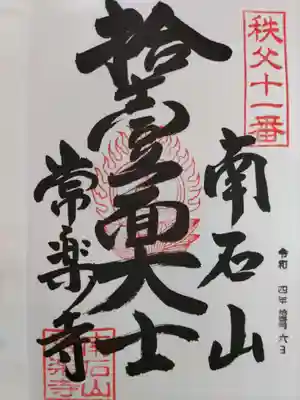 秩父十一番
令和 四年 六日
南石山
拾壹面大士
常楽寺
南石山
常楽寺